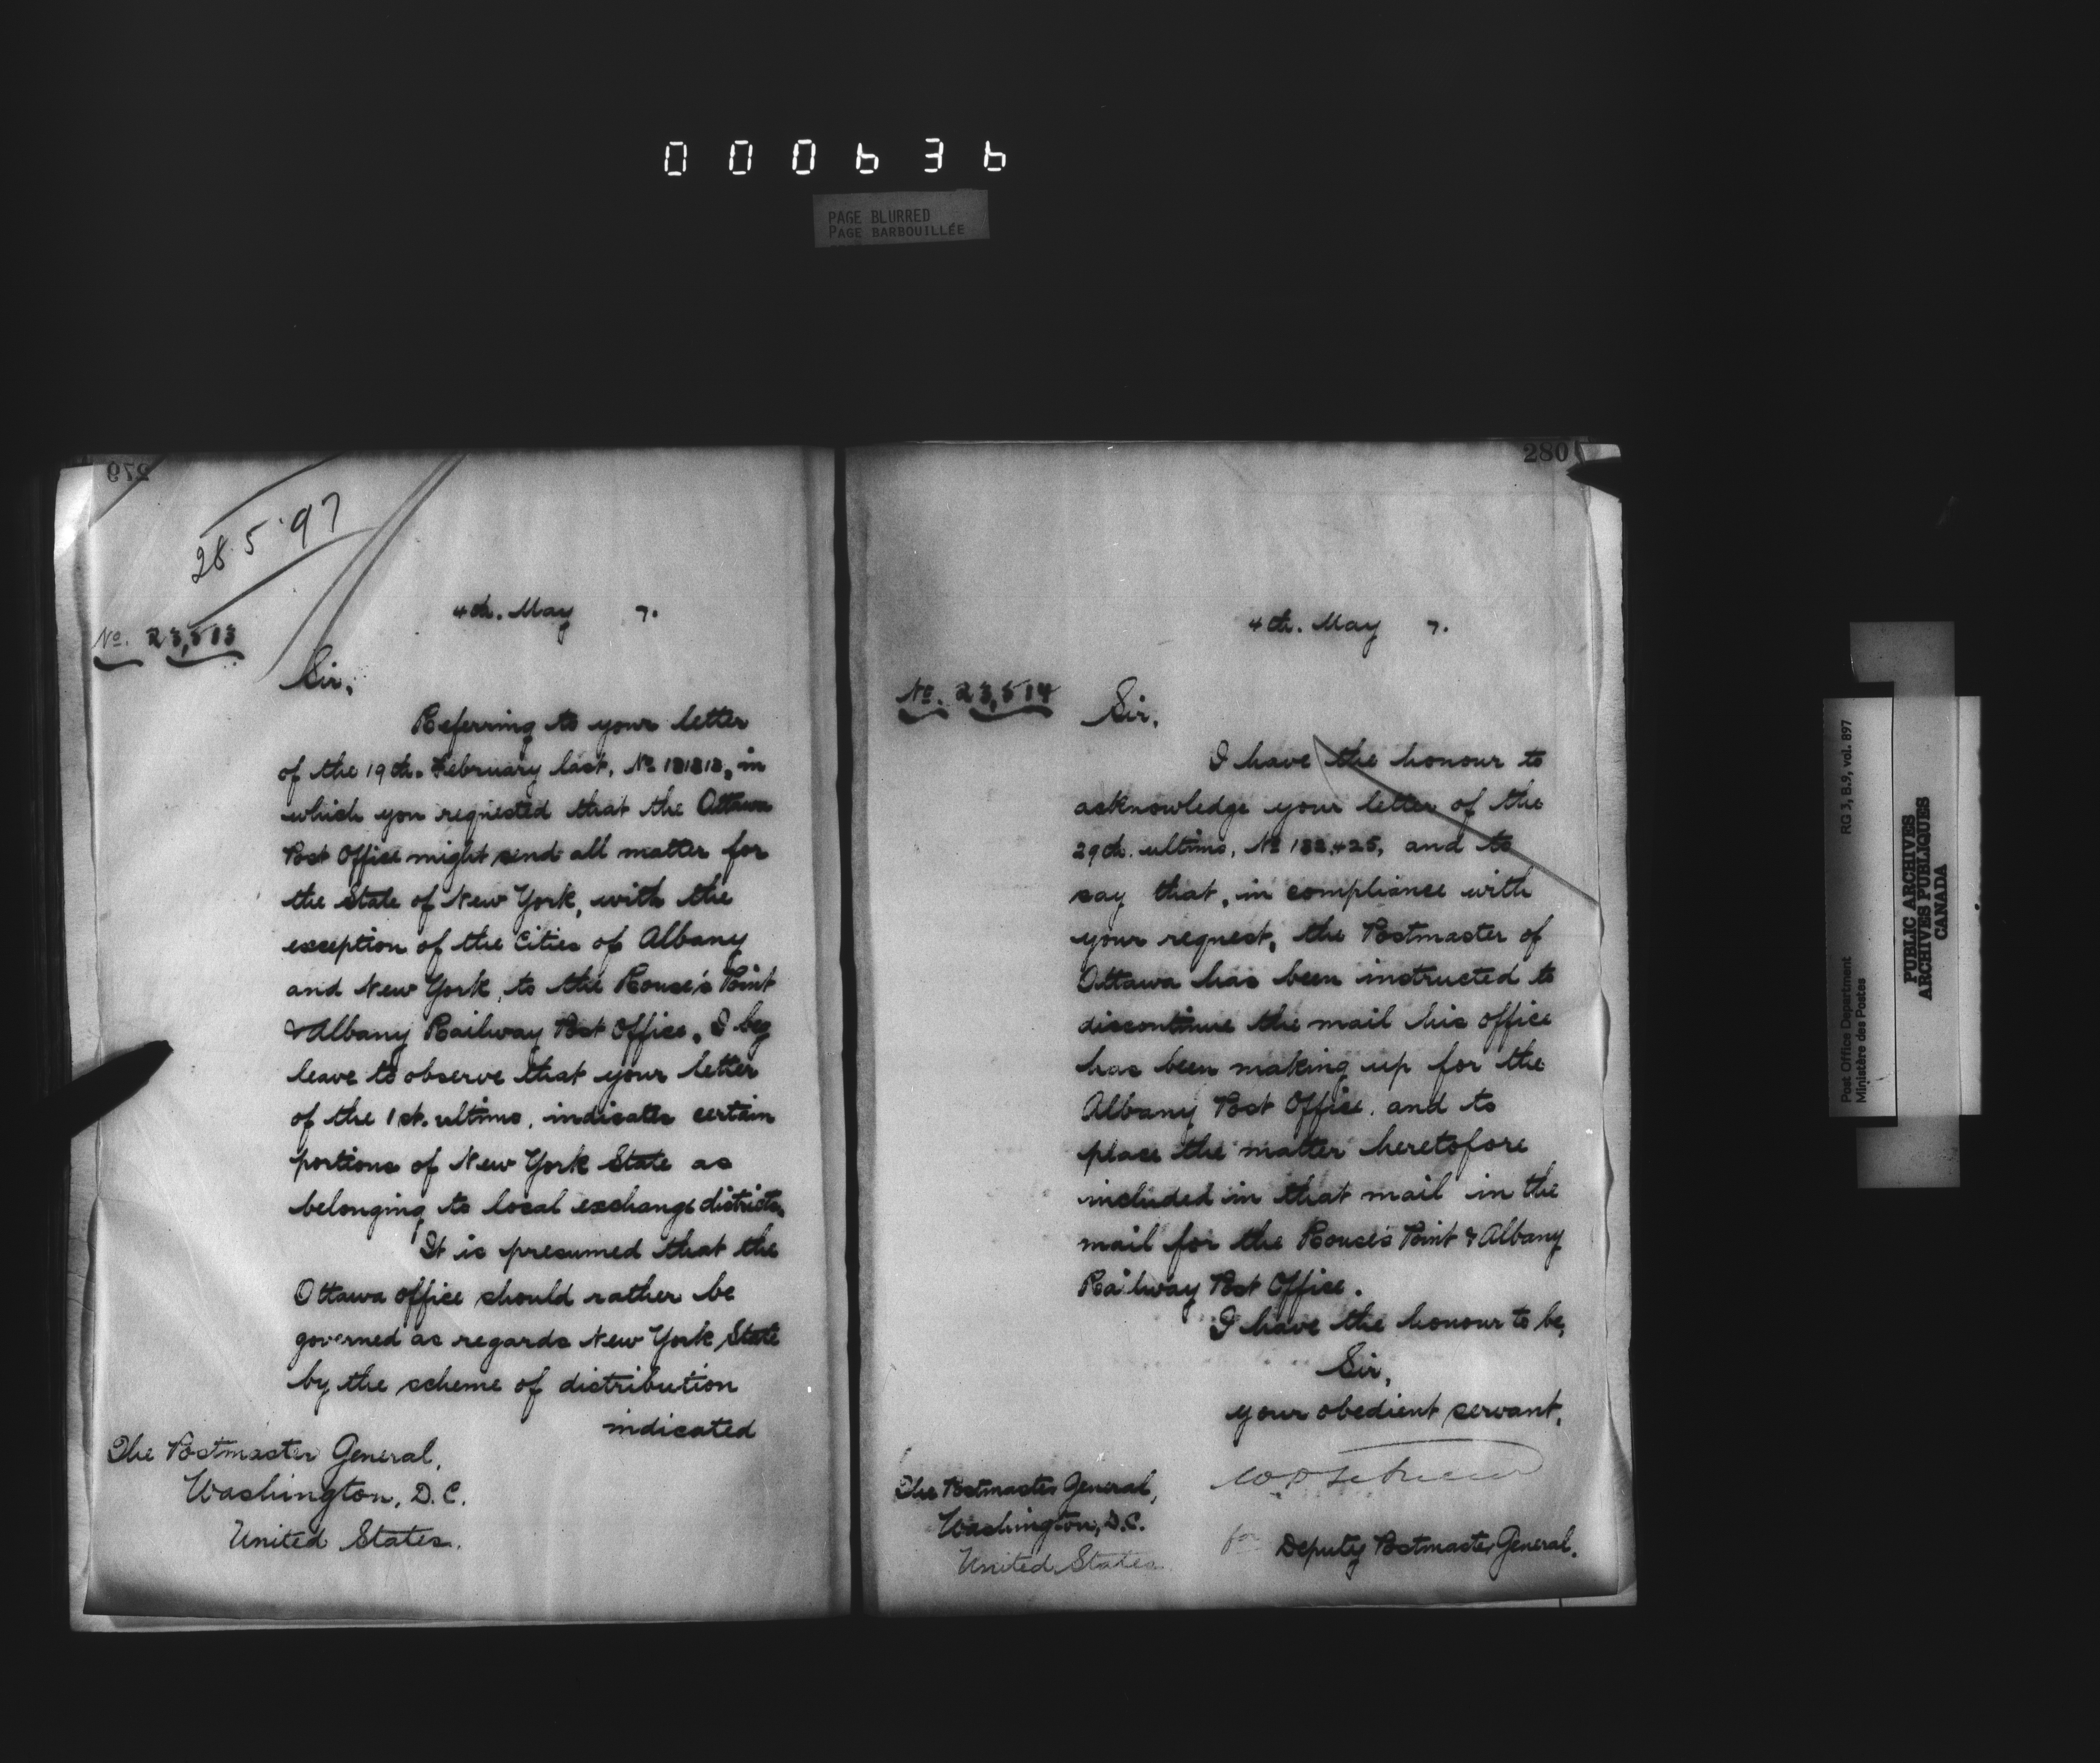 000636
PAGE BLURRED
PAGE BARBOUILLÉE
279
28.5.'97
4th. May 7.
No. 23,513
Sir,
Referring to your letter
of the 19th. February last, No. 131313, in
which you requested that the Ottawa
Post Office might send all matter for
the State of New York, with the
exception of the Cities of Albany
and New York, to the Rouse's Point
& Albany Railway Post Office, I beg
leave to observe that your letter
of the 1st. ultimo, indicates certain
portions of New York State as
belonging to local exchange districts.
It is presumed that the
Ottawa office should rather be
governed as regards New York State
by the scheme of distribution
indicated
The Postmaster General,
Washington, D.C.
United States.
280
4th. May 7.
No. 23,514
Sir,
I have the honour to
acknowledge your letter of the
29th. ultimo, No. and to
say that, in compliance with
your request, the Postmaster of
Ottawa has been instructed to
discontinue the mail his office
has been making up for the
Albany Post Office, and to
place the matter heretofore
included in that mail in the
mail for the Rouse's Point & Albany
Railway Post Office.
I have the honour to be,
Sir,
your obedient servant,
for Deputy Postmaster General.
The Postmaster General,
Washington, D.C.
United States
Post Office Department RG 3, B.9, vol. 897
Ministère des Postes
PUBLIC ARCHIVES
ARCHIVES PUBLIQUES
CANADA